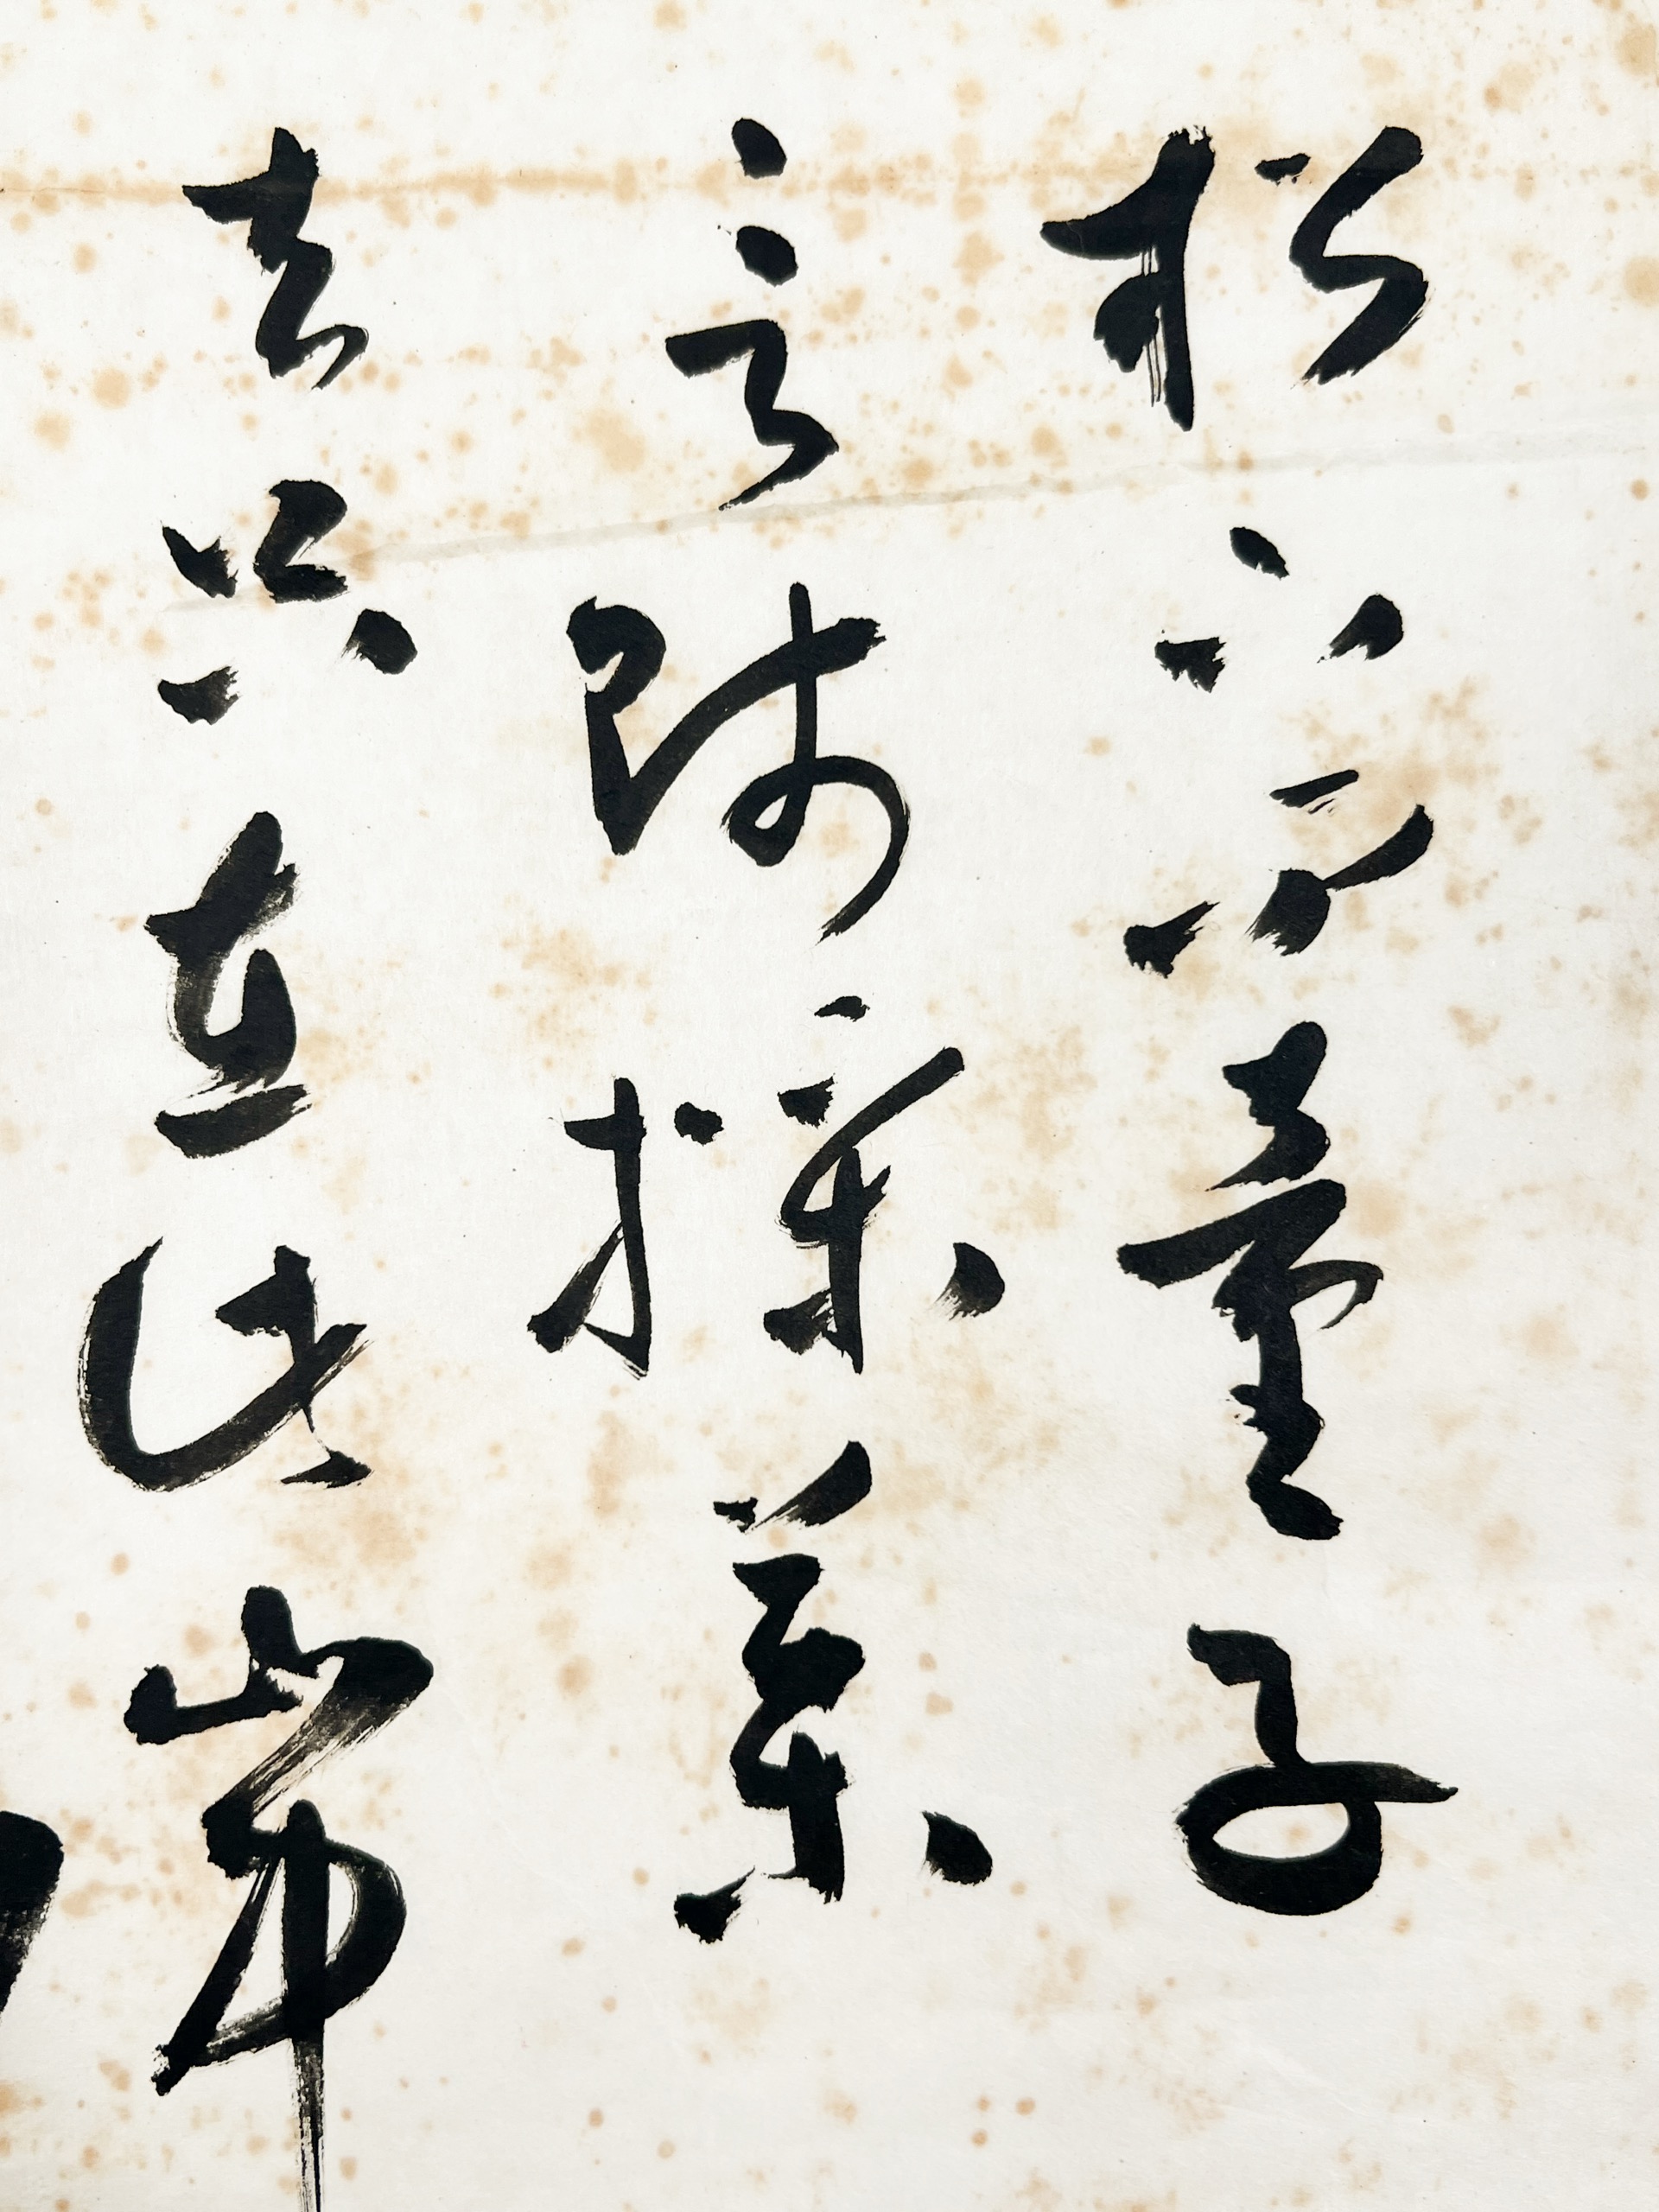 松下問童子
言師採藥
去只在此山中